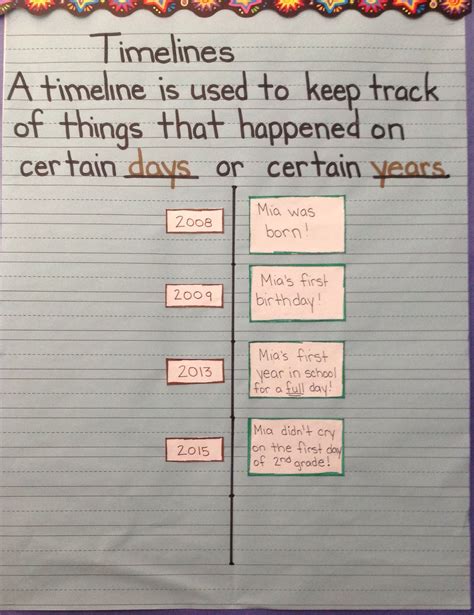 Timelines
A timeline is used to keep track
of things that happened on
certain days or certain years
2008
Mia was
born!
2009
Mia's first
birthday!
2013
Mia's first
year in school
for a full day!
2015
Mia didn't cry
on the first day
of 2nd grade!